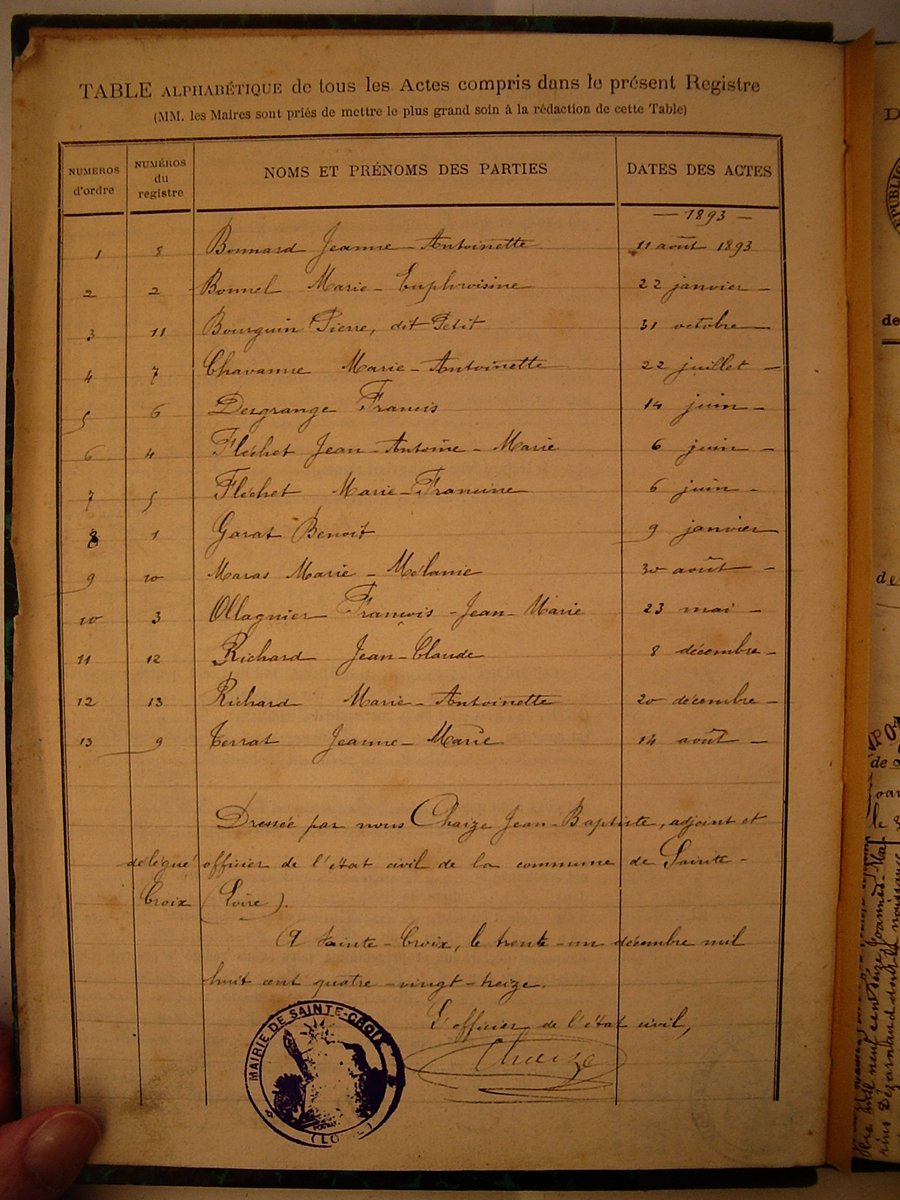 TABLE ALPHABÉTIQUE de tous les Actes compris dans le présent Registre
(MM. les Maires sont priés de mettre le plus grand soin à la rédaction de cette Table)
NUMÉROS d'ordre NUMÉROS du registre NOMS ET PRÉNOMS DES PARTIES DATES DES ACTES
— 1893 —
1 8 Bonnard Jeanne-Antoinette 11 août 1893
2 2 Bonnel Marie-Euphroisine 22 janvier —
3 11 Bourguin Pierre, dit Petit 31 octobre —
4 7 Chavanne Marie-Antoinette 22 juillet —
5 6 Desgrange Francis 14 juin —
6 4 Fléchet Jean-Antoine-Marie 6 juin —
7 5 Fléchet Marie-Francine 6 juin —
8 1 Garat Benoit 9 janvier —
9 10 Maras Marie-Mélanie 30 août —
10 3 Ollagnier François-Jean-Marie 23 mai —
11 12 Richard Jean-Claude 8 décembre —
12 13 Richard Marie-Antoinette 20 décembre —
13 9 Terrat Jeanne-Marie 14 août —
Dressée par nous Chaize Jean-Baptiste, adjoint et
délégué officier de l'état civil de la commune de Sainte-
Croix (Loire).
A Sainte-Croix, le trente-un décembre mil
huit cent quatre-vingt-treize.
L'officier de l'état civil,
Chaize
MAIRIE DE SAINTE-CROIX
(LOIRE)